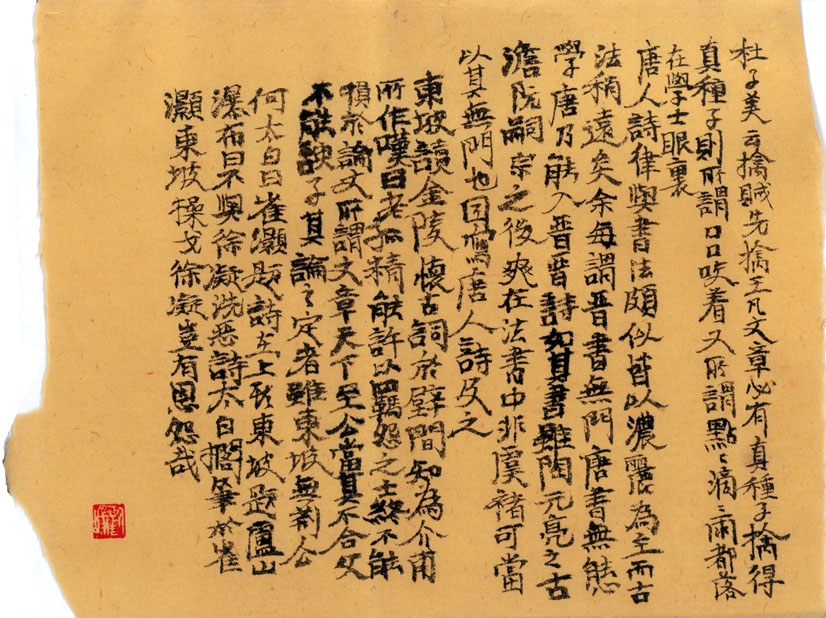 杜子美云擒賊先擒王凡文章必有真種子擒得
真種子則所謂口口咬着又所謂點々滴々雨都落
在學士眼裏
唐人詩律與書法頗似皆以濃麗為主而古
法稍遠矣余每謂晉書無門唐書無態
學唐乃能入晉晉詩如其書雖陶元亮之古
澹阮嗣宗之後爽在法書中非虞褚可當
以其無門也因寫唐人詩及之
東坡讀金陵懷古詞於壁間知為介甫
所作嘆曰老狐精能許以羈怨之士終不能
損於論文所謂文章天下至公當其不合父
不能諛子其論之定者雖東坡無荊公
何太白曰崔灝題詩在上頭東坡題廬山
瀑布曰不與徐凝洗惡詩太白擱筆於崔
灝東坡操戈徐凝豈有恩怨哉